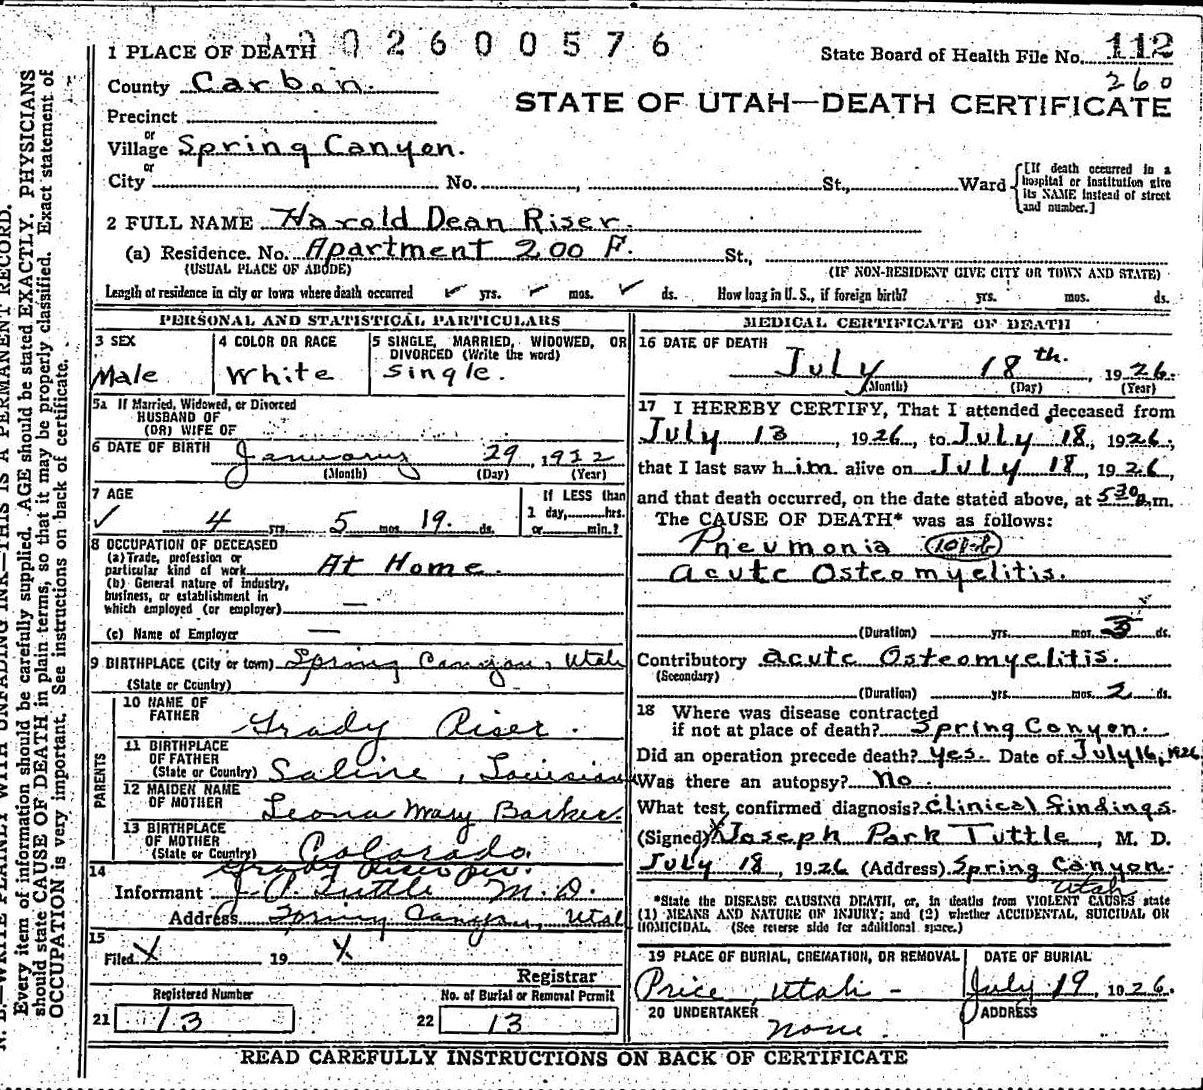 1 PLACE OF DEATH 002600576 State Board of Health File No. 112
260
County Carbon.
STATE OF UTAH—DEATH CERTIFICATE
Precinct
or
Village Spring Canyon.
or
City No. , St., Ward
[If death occurred in a hospital or institution give its NAME instead of street and number.]
2 FULL NAME Harold Dean Riser.
(a) Residence. No. Apartment 200 F. St.,
(USUAL PLACE OF ABODE) (IF NON-RESIDENT GIVE CITY OR TOWN AND STATE)
Length of residence in city or town where death occurred ✓ yrs. ✓ mos. ✓ ds. How long in U. S., if foreign birth? yrs. mos. ds.
PERSONAL AND STATISTICAL PARTICULARS
3 SEX
Male
4 COLOR OR RACE
White
5 SINGLE, MARRIED, WIDOWED, OR DIVORCED (Write the word)
Single.
5a If Married, Widowed, or Divorced
HUSBAND OF
(OR) WIFE OF
6 DATE OF BIRTH January 29, 1922
(Month) (Day) (Year)
7 AGE
✓ 4 yrs. 5 mos. 19. ds.
If LESS than
1 day, hrs.
or min.?
8 OCCUPATION OF DECEASED
(a) Trade, profession or
particular kind of work At Home.
(b) General nature of industry,
business, or establishment in
which employed (or employer) —
(c) Name of Employer —
9 BIRTHPLACE (City or town) Spring Canyon, Utah
(State or Country)
PARENTS
10 NAME OF
FATHER Grady Riser.
11 BIRTHPLACE
OF FATHER
(State or Country) Saline, Louisiana
12 MAIDEN NAME
OF MOTHER Leona Mary Barker.
13 BIRTHPLACE
OF MOTHER
(State or Country) Colorado.
14 Grady Riser per.
Informant J. P. Tuttle M. D.
Address Spring Canyon, Utah
15
Filed X 19 X
Registrar
Registered Number
21 13
No. of Burial or Removal Permit
22 13
MEDICAL CERTIFICATE OF DEATH
16 DATE OF DEATH
July 18th. , 1926.
(Month) (Day) (Year)
17 I HEREBY CERTIFY, That I attended deceased from
July 13, 1926, to July 18, 1926,
that I last saw him. alive on July 18, 1926,
and that death occurred, on the date stated above, at 530 m.
The CAUSE OF DEATH* was as follows:
Pneumonia
acute Osteomyelitis.
(Duration) yrs. mos. 3 ds.
Contributory acute Osteomyelitis.
(Secondary)
(Duration) yrs. mos. 2 ds.
18 Where was disease contracted
if not at place of death? Spring Canyon.
Did an operation precede death? yes. Date of July 16, 1926
Was there an autopsy? No
What test confirmed diagnosis? Clinical findings.
(Signed) X Joseph Park Tuttle, M. D.
July 18, 1926 (Address) Spring Canyon.
Utah
*State the DISEASE CAUSING DEATH, or, in deaths from VIOLENT CAUSES state
(1) MEANS AND NATURE OF INJURY; and (2) whether ACCIDENTAL, SUICIDAL OR
HOMICIDAL. (See reverse side for additional space.)
19 PLACE OF BURIAL, CREMATION, OR REMOVAL
Price, Utah -
DATE OF BURIAL
July 19, 1926.
20 UNDERTAKER
none.
ADDRESS
READ CAREFULLY INSTRUCTIONS ON BACK OF CERTIFICATE
N. B.—WRITE PLAINLY WITH UNFADING INK—THIS IS A PERMANENT RECORD.
Every item of information should be carefully supplied. AGE should be stated EXACTLY. PHYSICIANS
should state CAUSE OF DEATH in plain terms, so that it may be properly classified. Exact statement of
OCCUPATION is very important. See instructions on back of certificate.